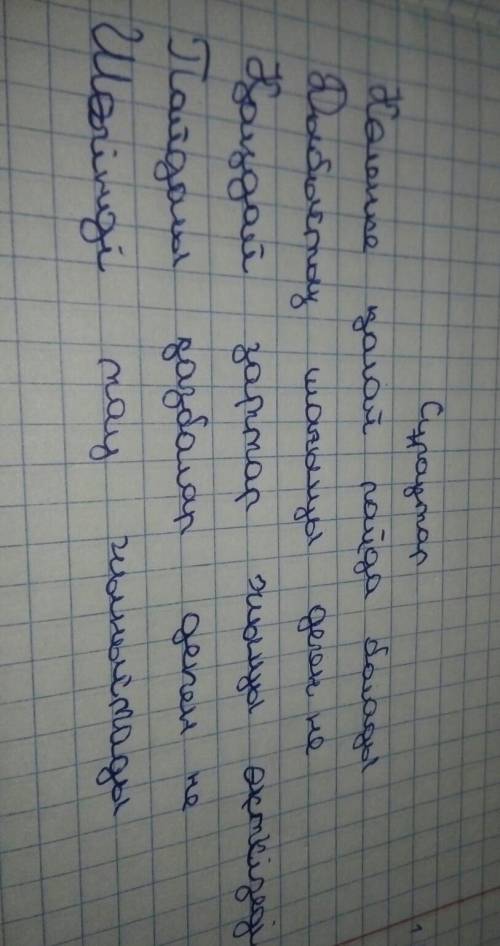 Сұрақтар
Көлеңке қалай пайда болады
Дыбыстың шағылуы деген не
Қандай заттар жылуы өткізеді
Пайдалы қазбалар деген не
Шөгінді тау жыныйтады